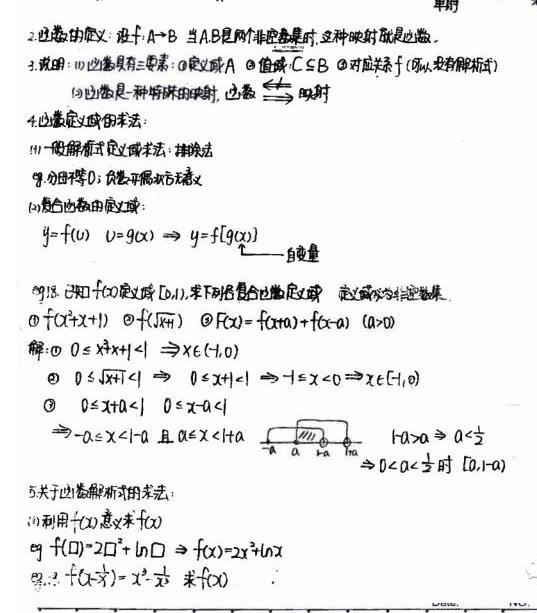 2.函数的定义:设f:A→B 当A.B是两个非空数集时,这种映射就是函数.
3.说明:(1)函数具有三要素:①定义域A ②值域C⊆B ③对应关系f(可以没有解析式)
(2)函数是一种特殊的映射,函数 映射
4.函数定义域的求法:
(1)一般解析式定义域求法:排除法
eg.分母不等0;负数开偶次方无意义
(2)复合函数的定义域:
y=f(u) u=g(x) ⇒ y=f[g(x)]
自变量
eg18.已知f(x)定义域[0,1),求下列各复合函数定义域 定义域必为非空数集
①f(x²+x+1) ②f(√x+1) ③F(x)=f(x+a)+f(x-a) (a>0)
解:① 0≤x²+x+1<1 ⇒x∈(-1,0)
② 0≤√x+1<1 ⇒ 0≤x+1<1 ⇒-1≤x<0⇒x∈[-1,0)
③ 0≤x+a<1 0≤x-a<1
⇒-a≤x<1-a 且 a≤x<1+a -a a 1-a 1+a 1-a>a ⇒ a<1/2
⇒0<a<1/2时 [a,1-a)
5.关于函数解析式的求法:
(1)利用f(x)意义求f(x)
eg f(□)=2□²+ln□ ⇒ f(x)=2x²+lnx
f(x-1/x)=x³-1/x³ 求f(x)